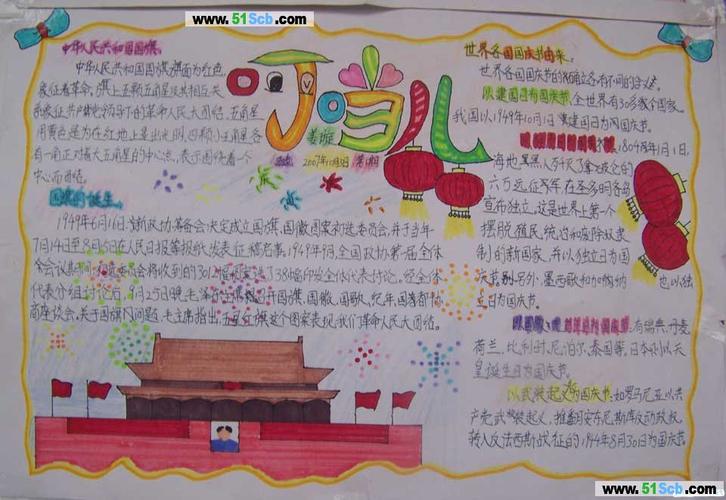 www.51Scb.com
中华人民共和国国旗
中华人民共和国国旗旗面为红色,
象征着革命,旗上五颗五角星及其相互关
系象征共产党领导下的革命人民大团结,五角星
用黄色是为在红地上显出光明,四颗小五角星各
有一角正对着大五角星的中心点,表示围绕着一个
中心而团结。
国旗的诞生
1949年6月16日,新政协筹备会决定成立国旗,国徽图案初选委员会,并于当年
7月14日至8月15日在人民日报等报纸发表征稿启事。1949年9月,全国政协第一届全体
代表分组讨论后,9月25日晚,毛泽东主席召开国旗、国徽、国歌、纪年、国都协
商座谈会,关于国旗问题,毛主席指出:五星红旗这个图案表现我们革命人民大团结。
叮当儿
姜璇
2007年10月8日
世界各国国庆节由来
世界各国国庆节的确立各有不同的含义。
以建国日为国庆节,全世界有30多个国家。
我国以1949年10月1日建国日为国庆节。
1804年1月1日,
海地
宣布独立,这是世界上第一个
摆脱殖民统治和废除奴隶
制的新国家,并以独立日为国
庆节。另外,墨西哥和加纳
也以独
立日为国庆节。
有瑞典、丹麦、
荷兰、比利时、尼泊尔、泰国等,日本则以天
皇诞生日为国庆节。
以武装起义为国庆节:如罗马尼亚以共
产党武装起义,推翻安东尼斯库反动政权,
转入反法西斯战征的1944年8月30日为国庆节
www.51Scb.com